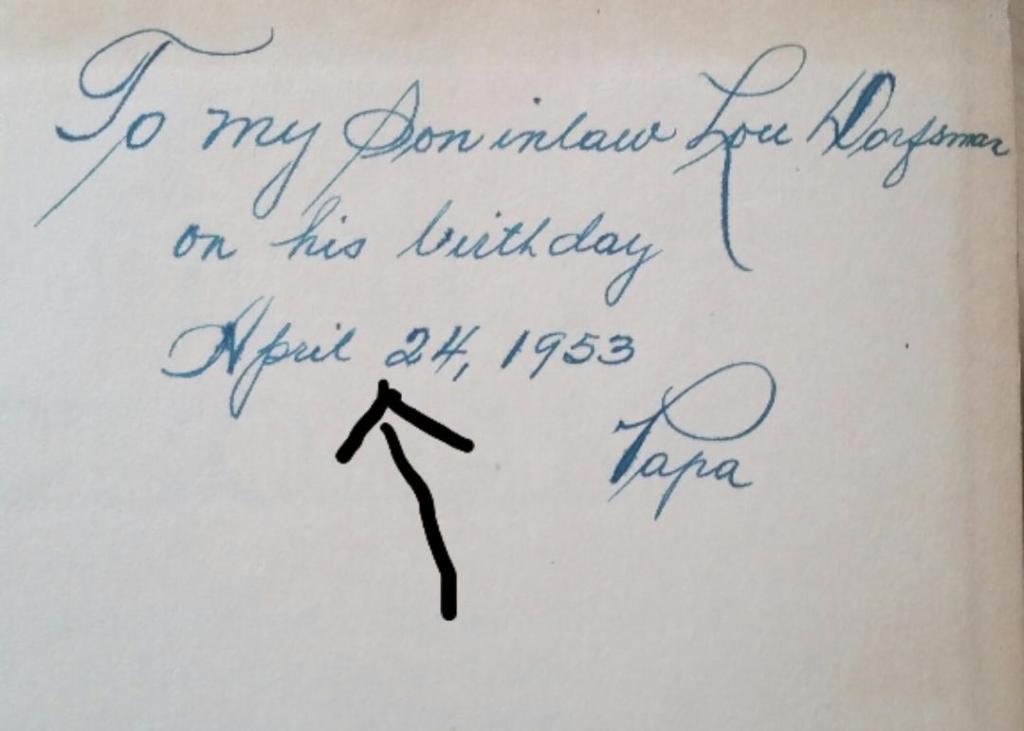 To my Son inlaw Lou Dorfsman
on his birthday
April 24, 1953
Papa